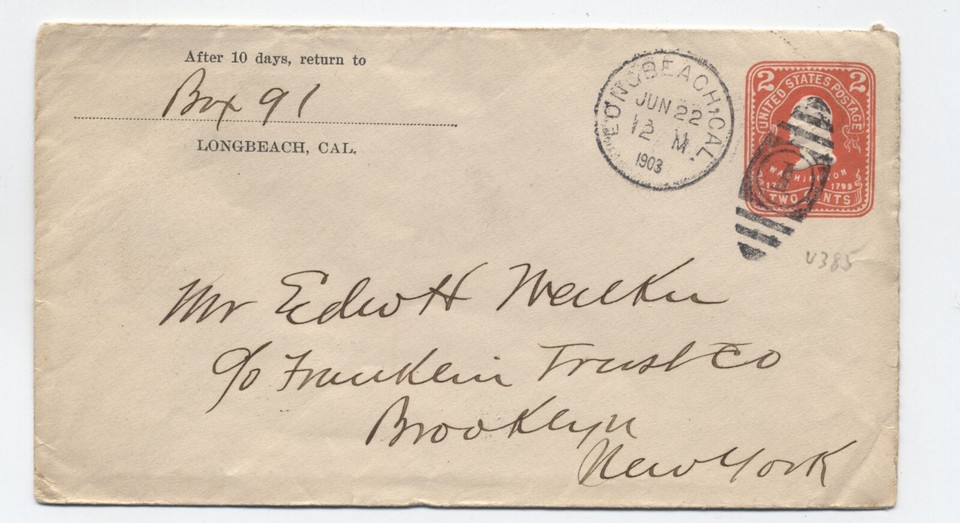 After 10 days, return to
Box 91
LONGBEACH, CAL.
LONGBEACH, CAL.
JUN 22
12 M.
1903
2 2
UNITED STATES POSTAGE
WASHINGTON
1799
TWO CENTS
1
U385
Mr Edw H Walker
c/o Franklin Trust Co
Brooklyn
New York